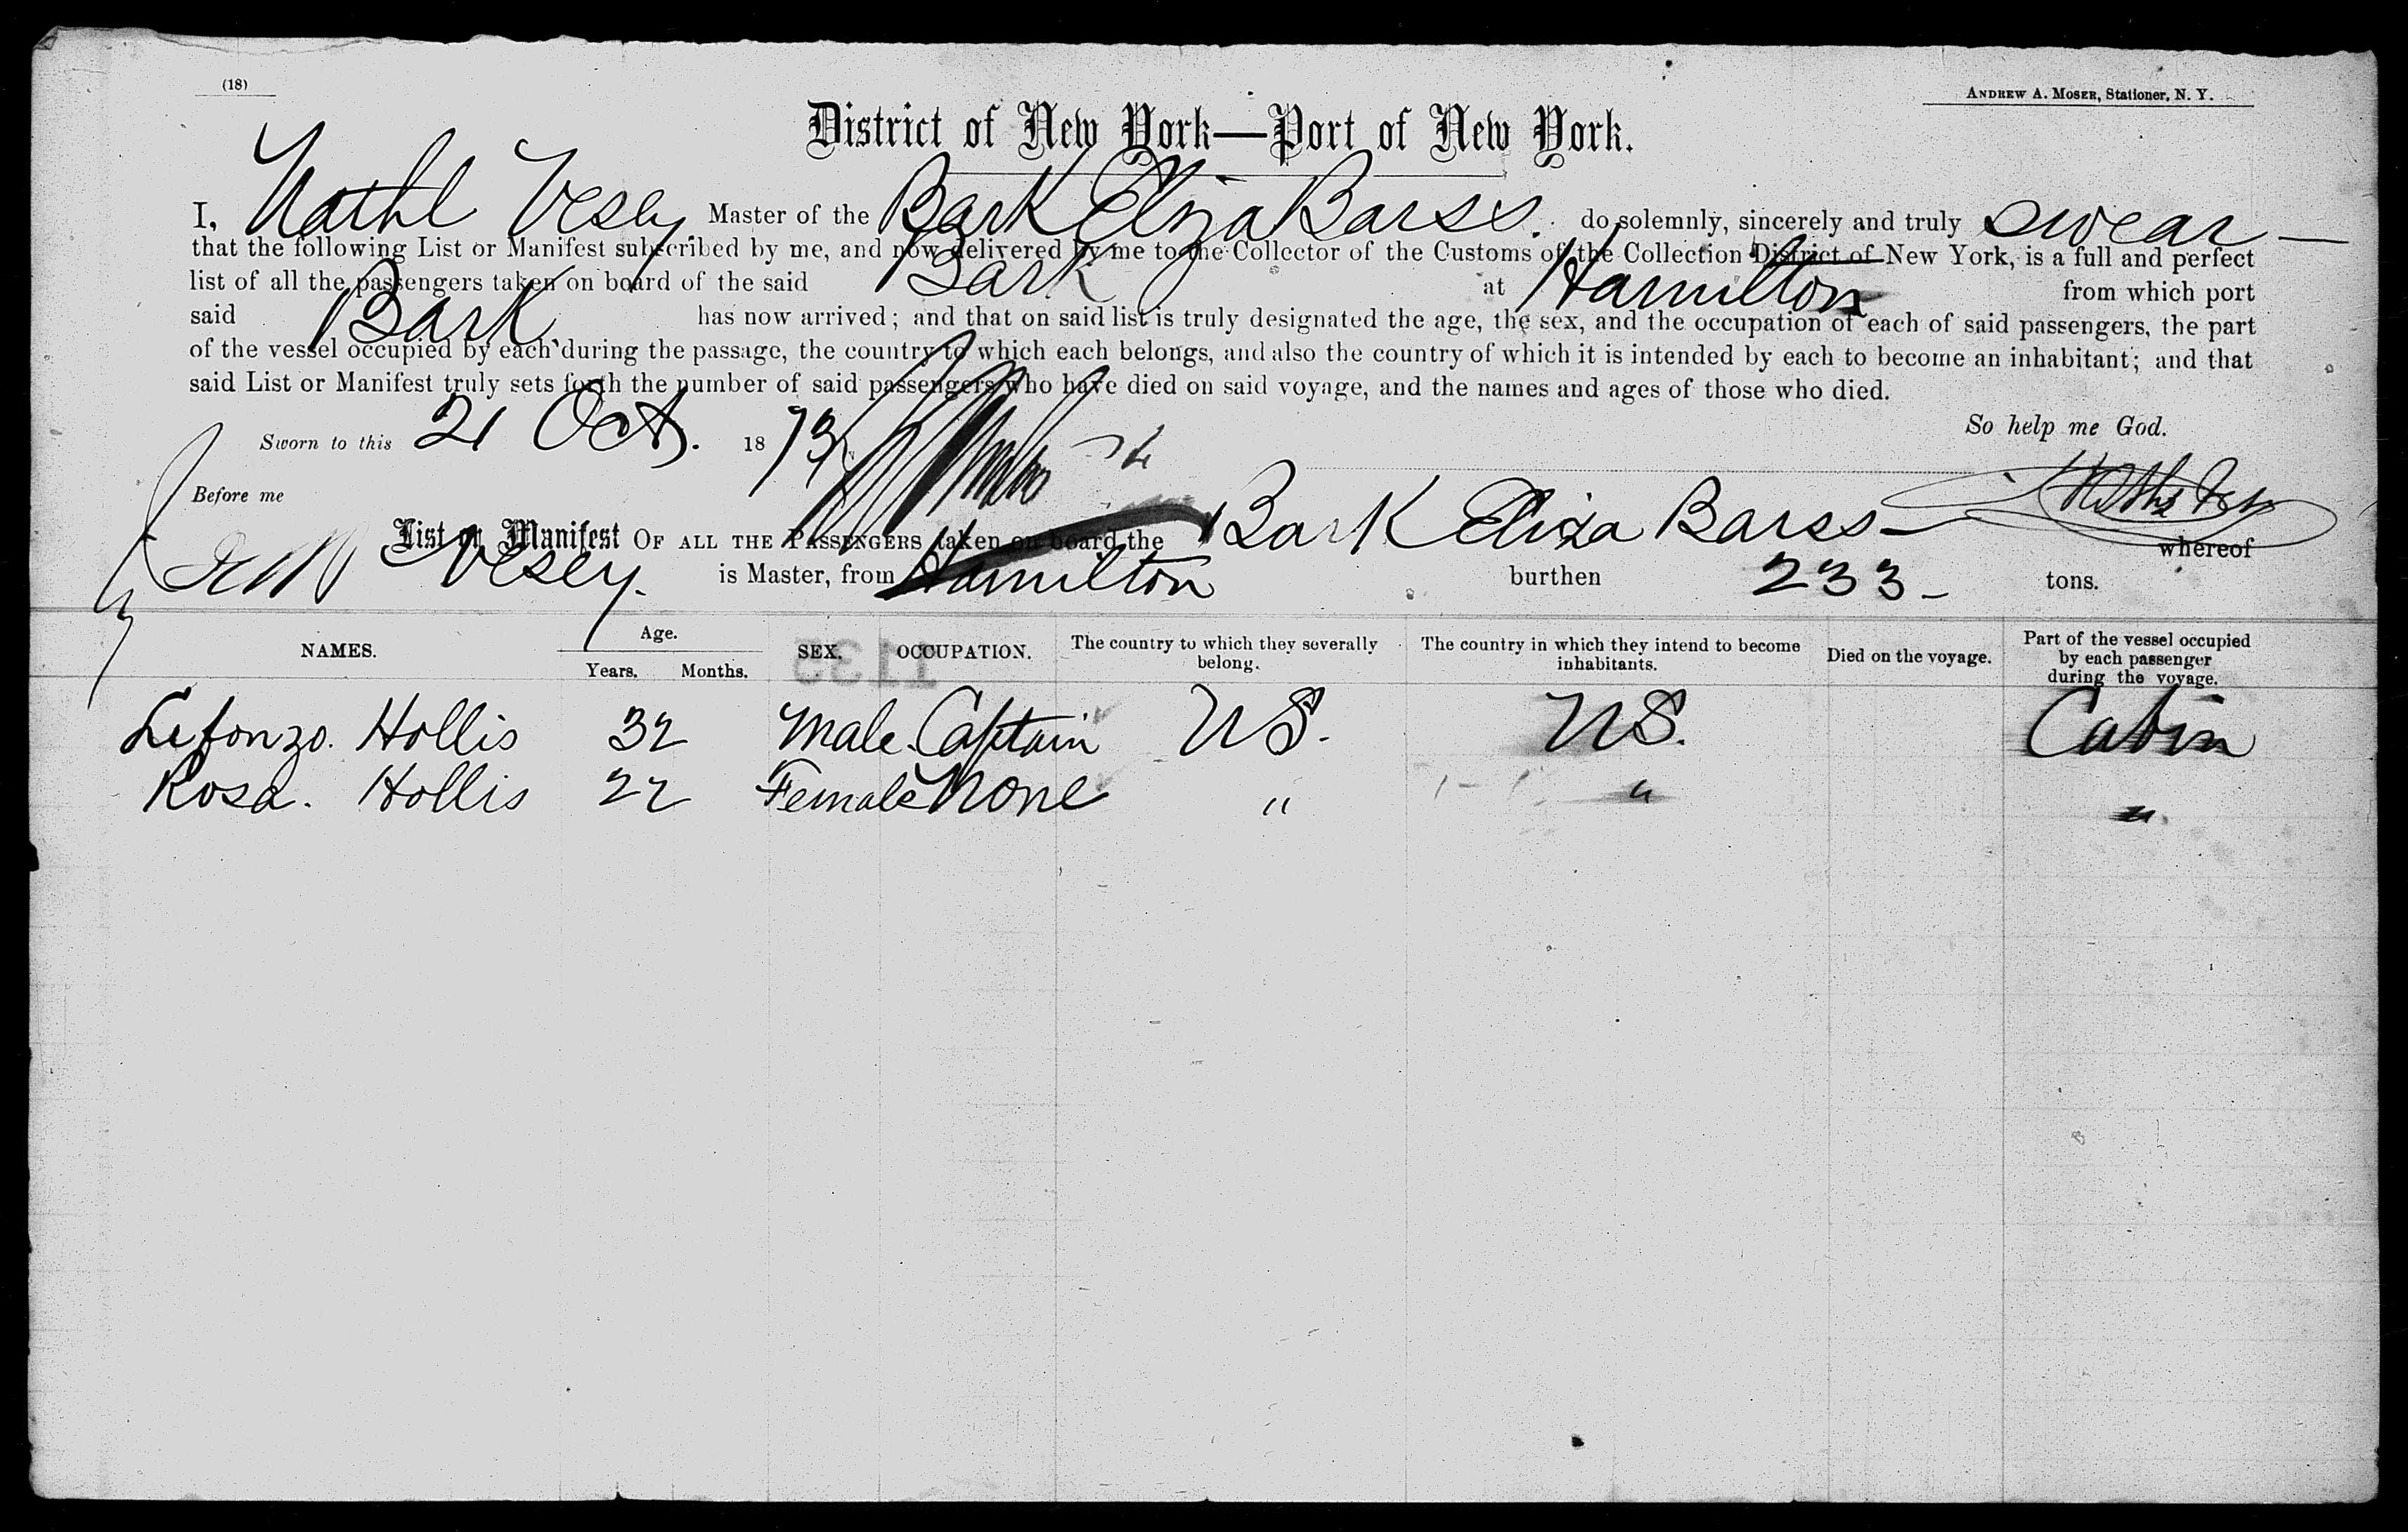 (18)
ANDREW A. MOSER, Stationer, N. Y.
District of New York—Port of New York.
I, Nathl Vesey Master of the Bark Eliza Barss. do solemnly, sincerely and truly swear —
that the following List or Manifest subscribed by me, and now delivered by me to the Collector of the Customs of the Collection District of New York, is a full and perfect
list of all the passengers taken on board of the said Bark at Hamilton from which port
said Bark has now arrived; and that on said list is truly designated the age, the sex, and the occupation of each of said passengers, the part
of the vessel occupied by each during the passage, the country to which each belongs, and also the country of which it is intended by each to become an inhabitant; and that
said List or Manifest truly sets forth the number of said passengers who have died on said voyage, and the names and ages of those who died.
So help me God.
Sworn to this 21 Oct. 1873
Before me
List or Manifest OF ALL THE PASSENGERS taken on board the Bark Eliza Barss — whereof
Vesey. is Master, from Hamilton burthen 233 - tons.
NAMES. Age. Years. Months. SEX. OCCUPATION. The country to which they severally belong. The country in which they intend to become inhabitants. Died on the voyage. Part of the vessel occupied by each passenger during the voyage.
Hollis 32 Male. Captain US. US. Cabin
Rosa. Hollis 22 Female None " " "